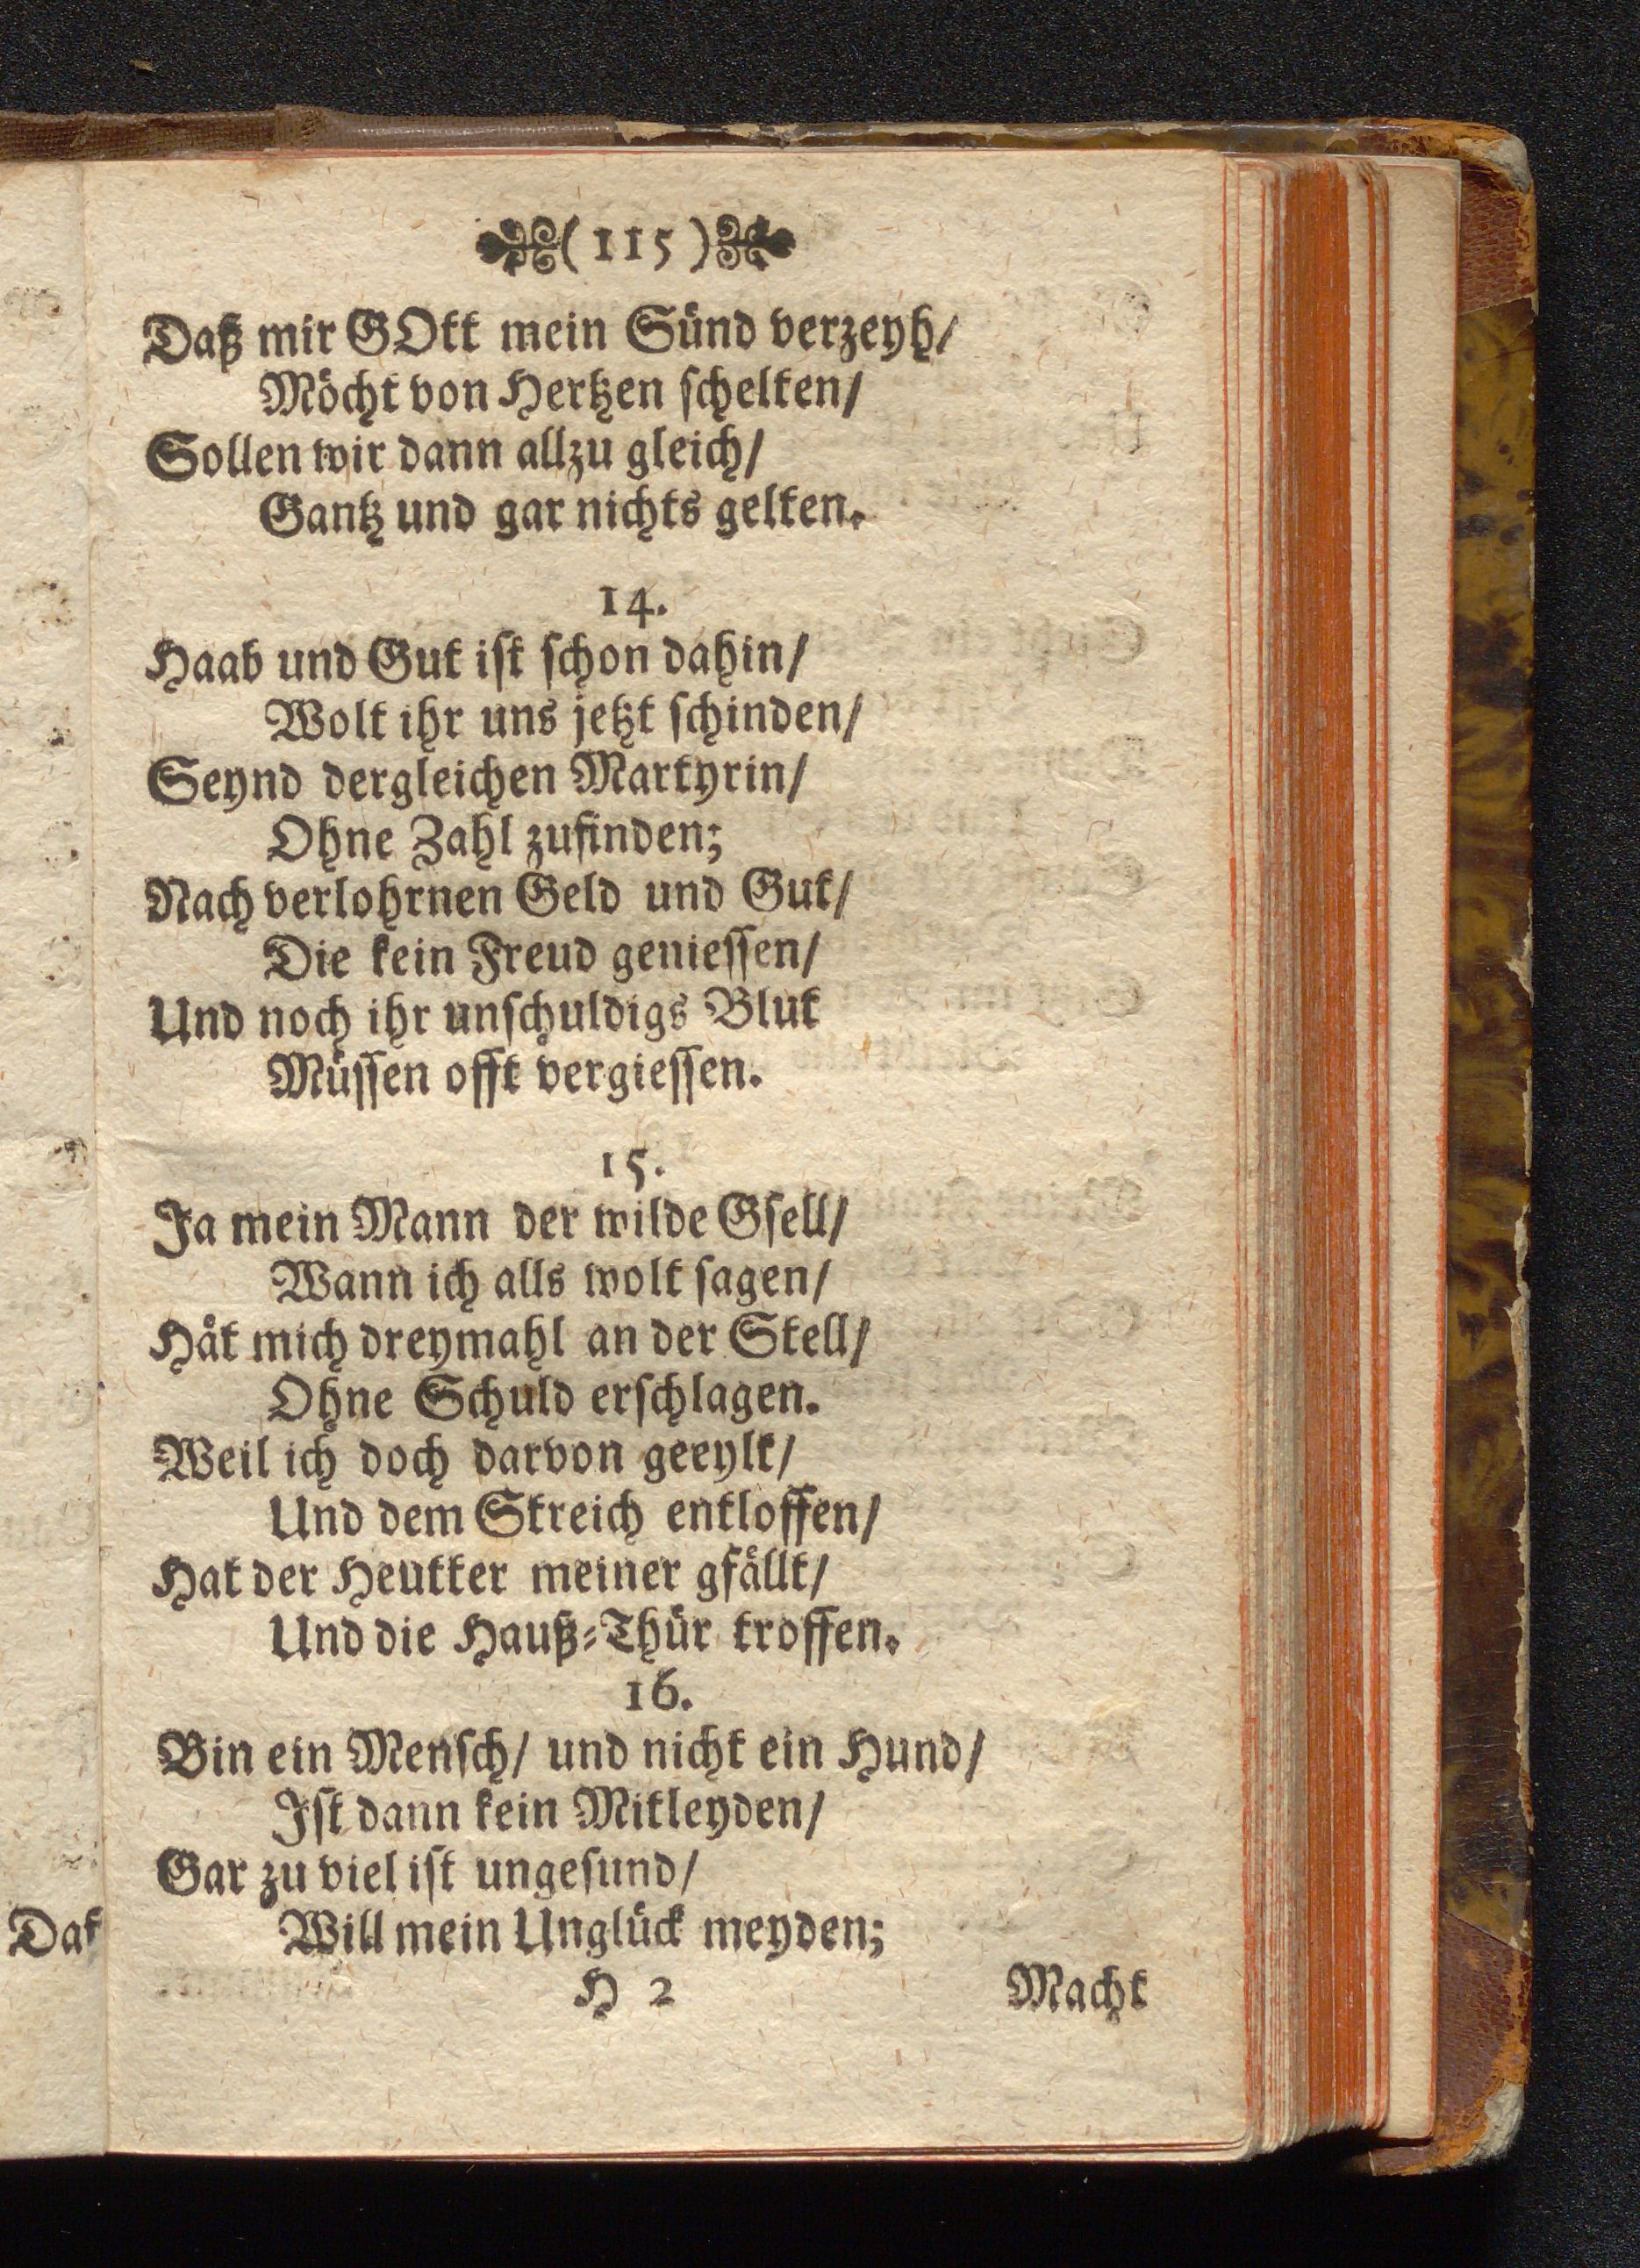 (115)
Daß mir GOtt mein Sünd verzeyh/
Möcht von Hertzen schelten/
Sollen wir dann allzu gleich/
Gantz und gar nichts gelten.
14.
Haab und Gut ist schon dahin/
Wolt ihr uns jetzt schinden/
Seynd dergleichen Martyrin/
Ohne Zahl zufinden;
Nach verlohrnen Geld und Gut/
Die kein Freud geniessen/
Und noch ihr unschuldigs Blut
Müssen offt vergiessen.
15.
Ja mein Mann der wilde Gsell/
Wann ich alls wolt sagen/
Hät mich dreymahl an der Stell/
Ohne Schuld erschlagen.
Weil ich doch darvon geeylt/
Und dem Streich entloffen/
Hat der Heutter meiner gfällt/
Und die Hauß-Thür troffen.
16.
Bin ein Mensch/ und nicht ein Hund/
Ist dann kein Mitleyden/
Gar zu viel ist ungesund/
Will mein Unglück meyden;
H 2 Macht